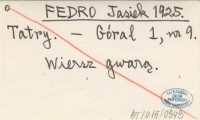 FEDRO Jasiek 1925.
Tatry. – Góral 1, nr 9.
Wiersz gwarą.